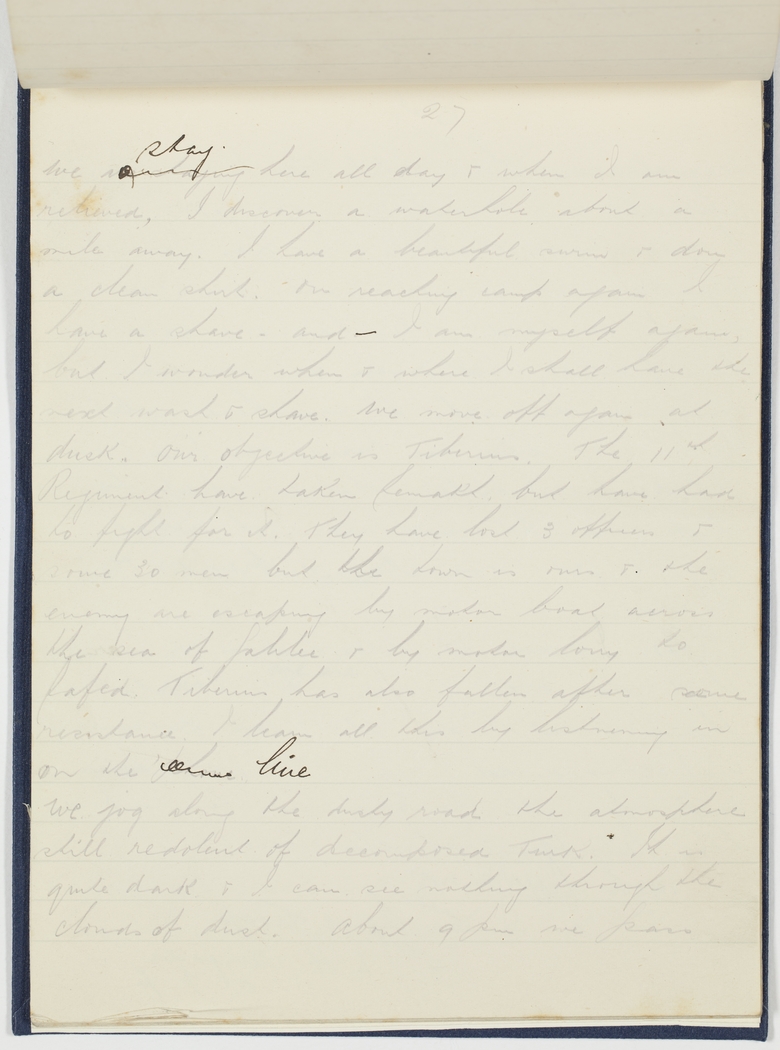 27
we stay here all day & when I am
relieved, I discover a waterhole about a
mile away. I have a beautiful swim & don
a clean shirt. On reaching camp again I
have a shave - and - I am myself again,
but I wonder when & where I shall have the
next wash & shave. We move off again at
dusk. Our objective is Tiberius. The 11th
Regiment have taken Semakh, but have had
to fight for it. They have lost 3 officers &
some 30 men but the town is ours & the
enemy are escaping by motor boat across
the sea of Galilee & by motor lorry to
Safed. Tiberius has also fallen after some
resistance. I learn all this by listening in
on the line
We jog along the dusty road the atmosphere
still redolent of decomposed Turk. It is
quite dark & I can see nothing through the
clouds of dust. About 9 pm we pass